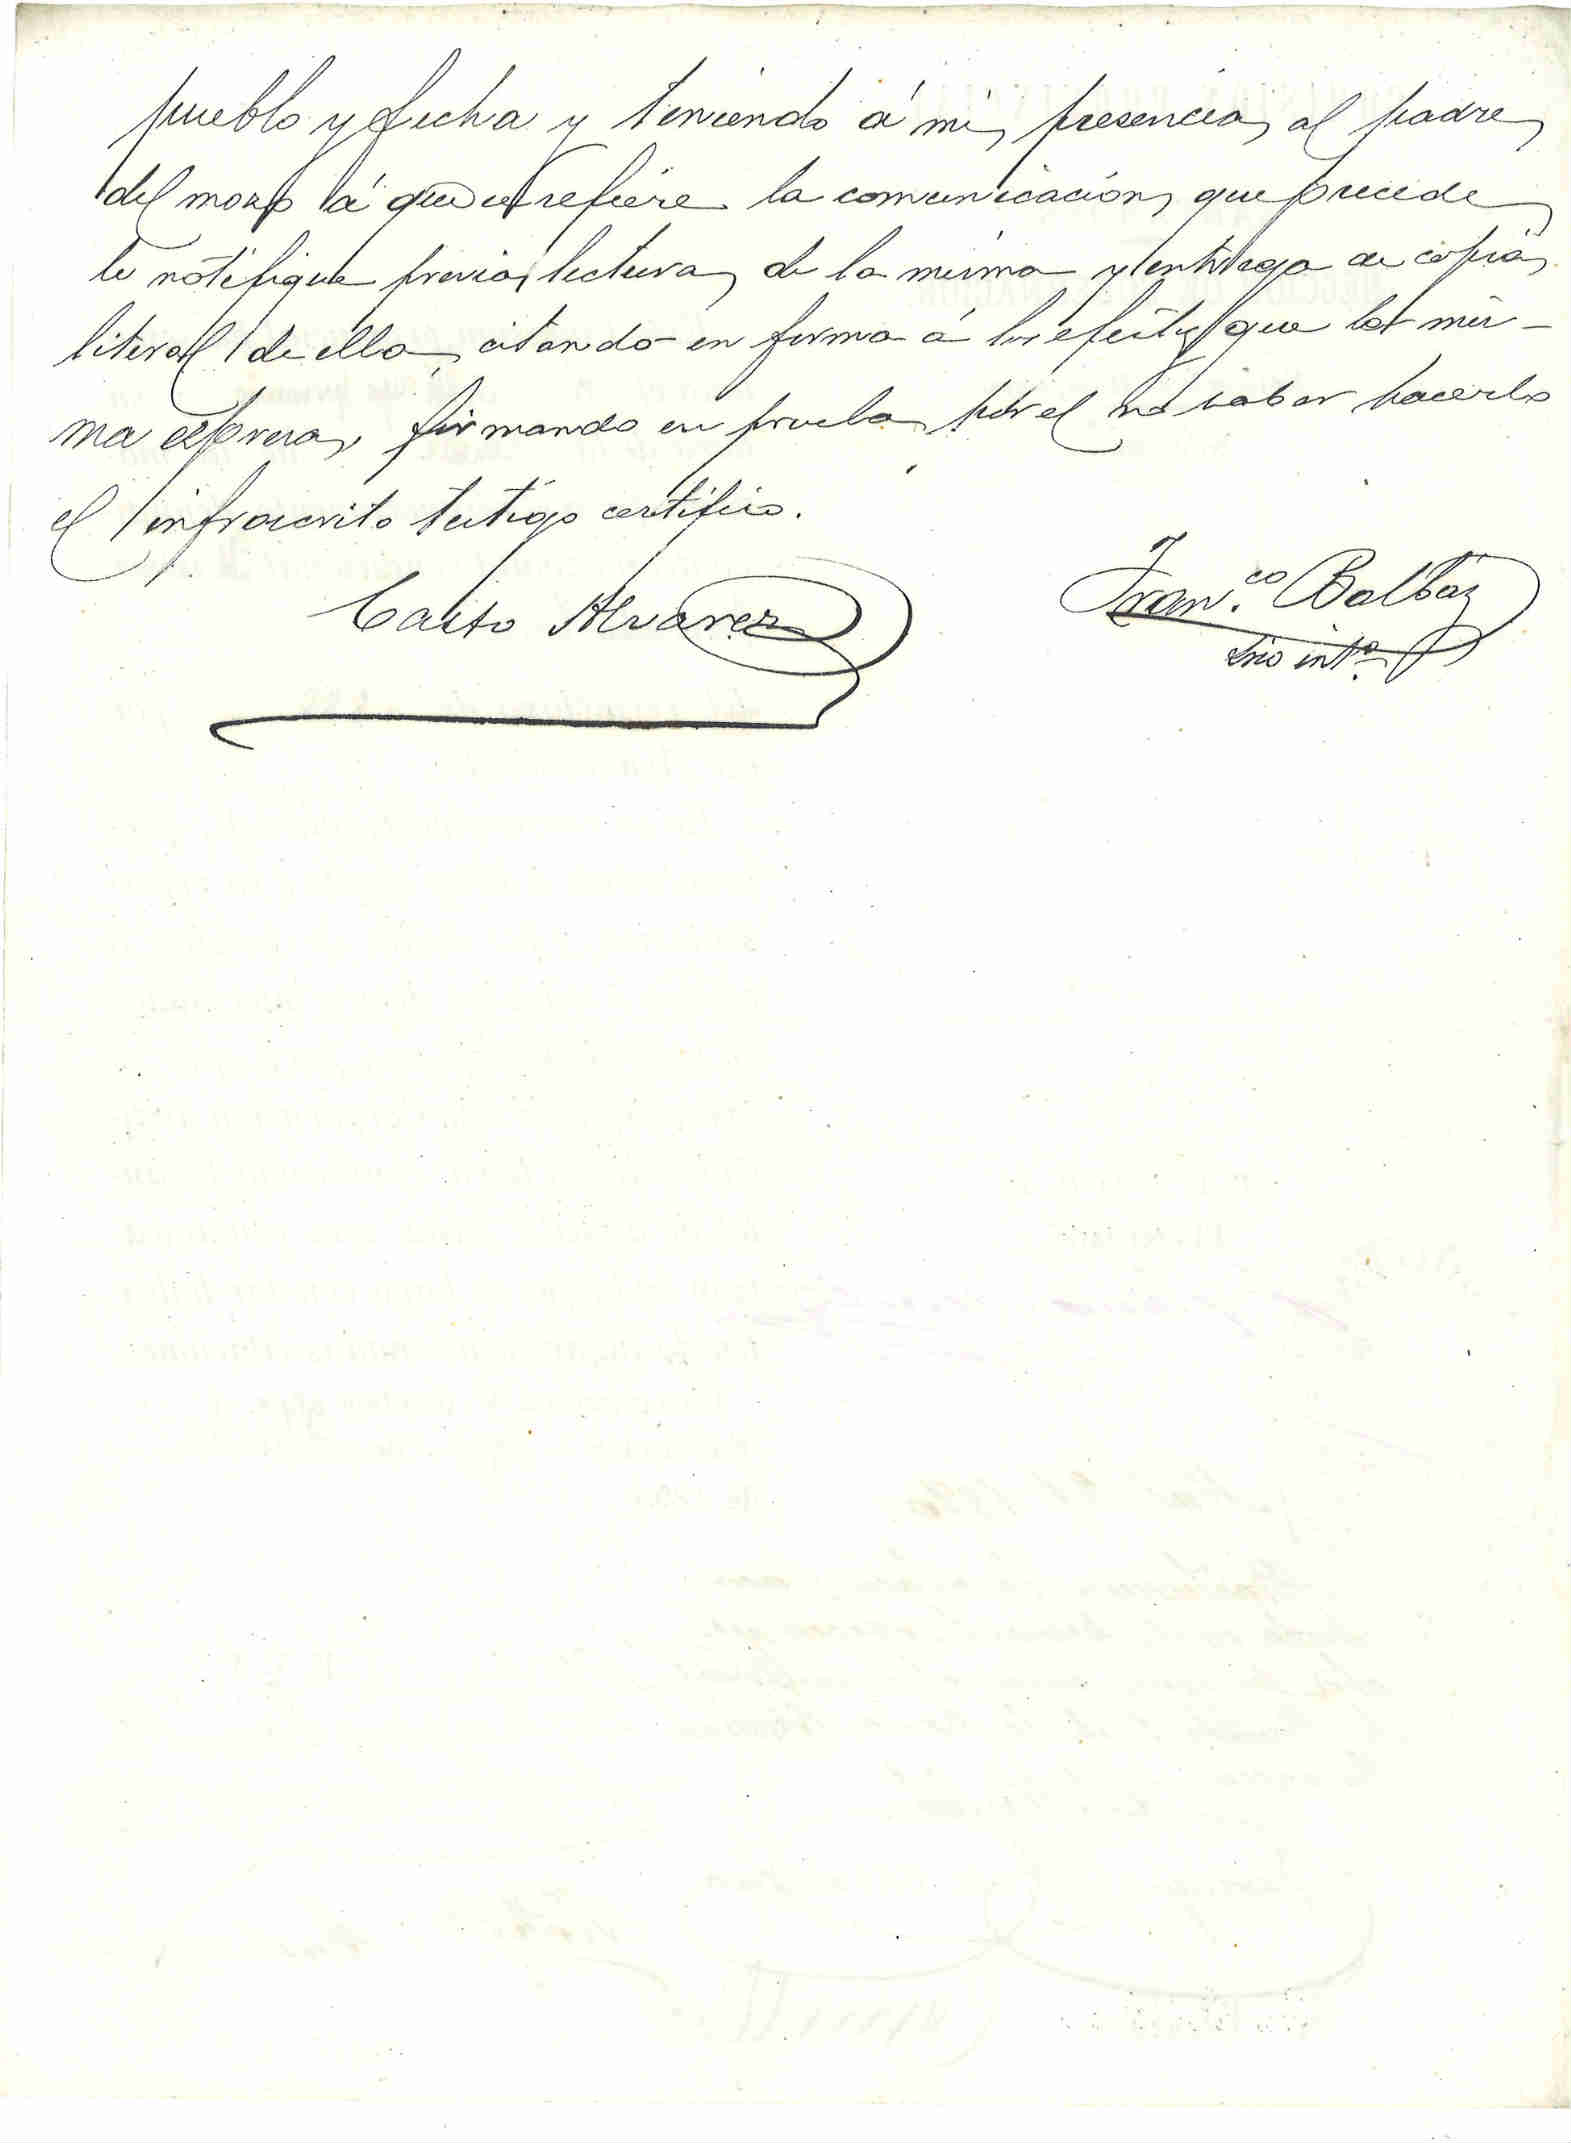 pueblo y fecha y teniendo á mi presencia al padre
del mozo á que se refiere la comunicación que precede
le notifiqué previa lectura de la misma y entrega de copia
literal de ella, citando en forma á los efectos que la mis-
ma expresa, firmando en prueba por el no saber hacerlo
el infrascrito testigo certifico.
Casto Alvarez
Fran.co Balbáz
Srio int.o